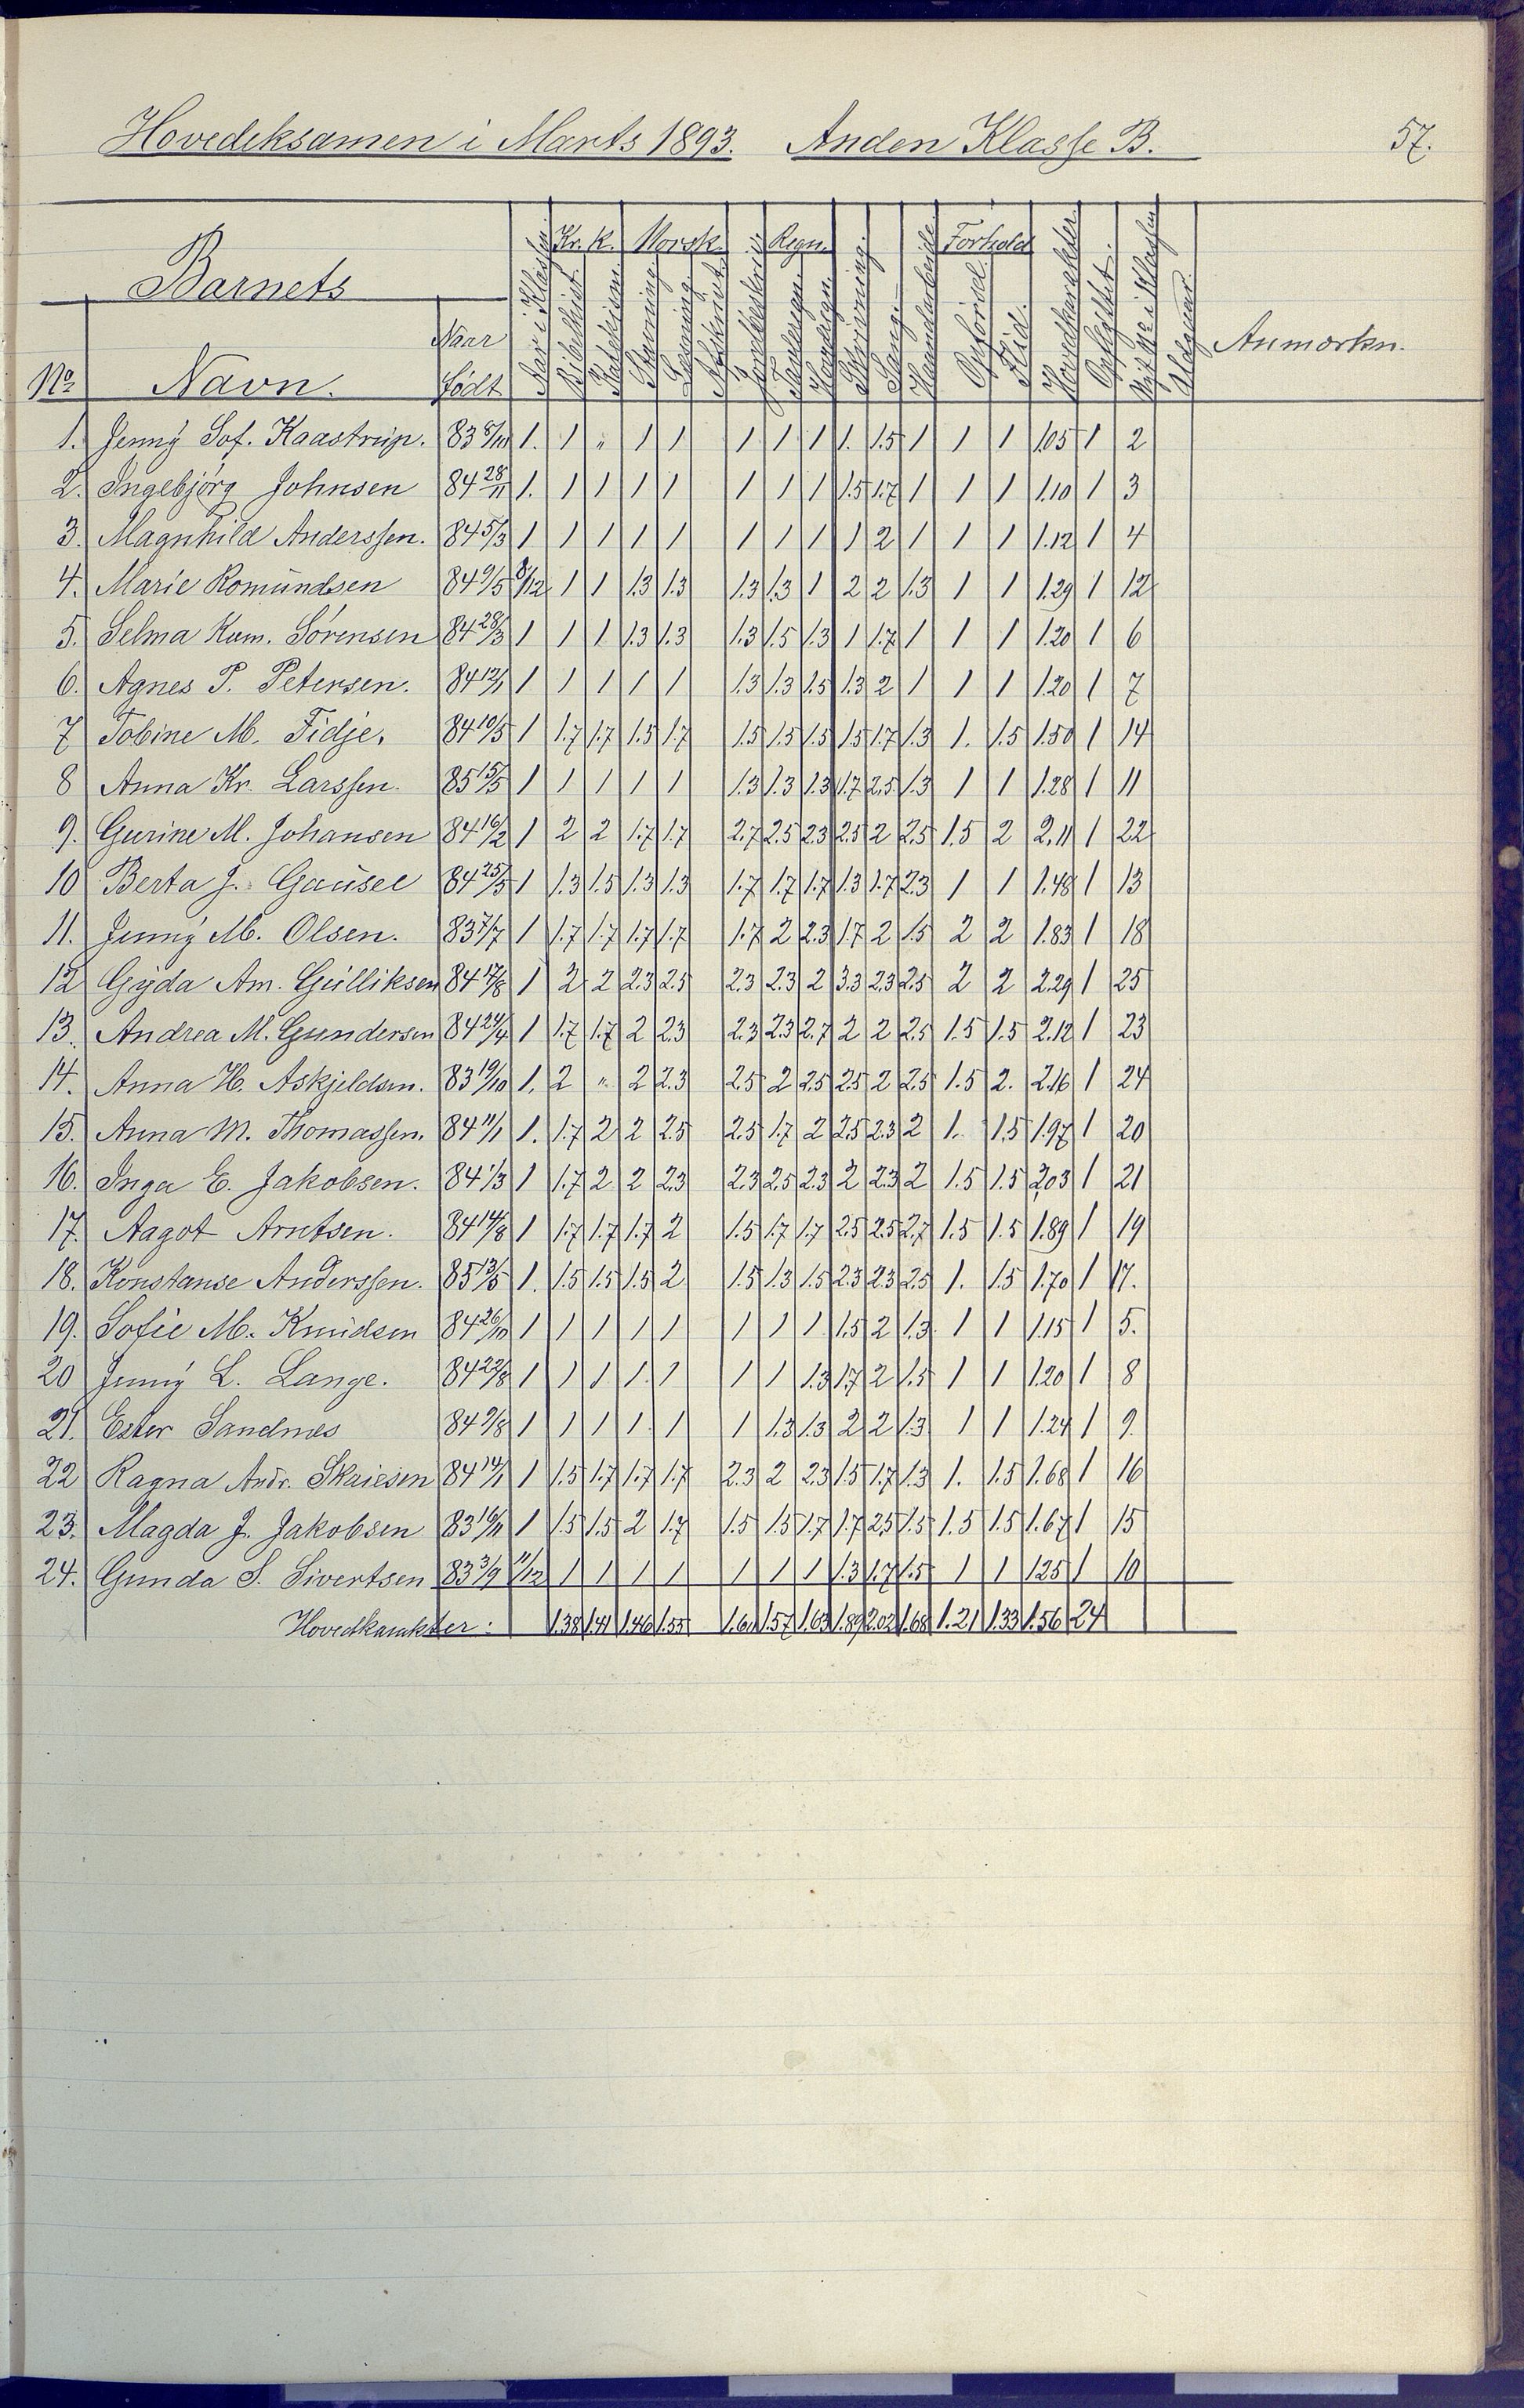 Hovedeksamen i Marts 1893. Anden Klasse B. 57.
Barnets Kr. K. Norsk. Regn. Forhold
No Navn. Naar Født Aar i Klassen Bibelhist. Katekism. Læsning. Jordbeskriv. Tavleregn. Hovedregn. Skrivning. Sang. Haandarbeide Opførsel Flid. Hovedkarakter. Opflyttet. Anmærkn.
1. Jenny Sof. Kaastrup. 83 8/11 1. 1 " 1 1 1 1 1 1. 1.5 1 1 1 1.05 1 2
2. Ingebjørg Johnsen 84 28/11 1. 1 1 1 1 1 1 1 1.5 1.7 1 1 1 1.10 1 3
3. Magnhild Anderssen. 84 5/3 1 1 1 1 1 1 1 1 1 2 1 1 1 1.12 1 4
4. Marie Romundsen 84 9/5 8/12 1 1 1.3 1.3 1.3 1.3 1 2 2 1.3 1 1 1.29 1 12
5. Selma Kum. Sørensen 84 28/3 1 1 1 1.3 1.3 1.3 1.5 1.3 1 1.7 1 1 1 1.20 1 6
6. Agnes P. Petersen. 84 12/1 1 1 1 1 1 1.3 1.3 1.5 1.3 2 1 1 1 1.20 1 7
7 Tobine M. Fidje. 84 10/5 1 1.7 1.7 1.5 1.7 1.5 1.5 1.5 1.5 1.7 1.3 1. 1.5 1.50 1 14
8 Anna Kr. Larssen. 85 15/5 1 1 1 1 1 1.3 1.3 1.3 1.7 2.5 1.3 1 1 1.28 1 11
9. Gurine M. Johansen 84 16/2 1 2 2 1.7 1.7 2.7 2.5 2.3 2.5 2 2.5 1.5 2 2.11 1 22
10 Berta J. Gausel 84 25/5 1 1.3 1.5 1.3 1.3 1.7 1.7 1.7 1.3 1.7 2.3 1 1 1.48 1 13
11. Jenny M. Olsen. 83 7/7 1 1.7 1.7 1.7 1.7 1.7 2 2.3 1.7 2 1.5 2 2 1.83 1 18
12 Gyda Am. Gulliksen 84 17/8 1 2 2 2.3 2.5 2.3 2.3 2 3.3 2.3 2.5 2 2 2.29 1 25
13. Andrea M. Gundersen 84 24/4 1 1.7 1.7 2 2.3 2.3 2.3 2.7 2 2 2.5 1.5 1.5 2.12 1 23
14. Anna H. Askjeldsen. 83 19/10 1. 2 " 2 2.3 2.5 2 2.5 2.5 2 2.5 1.5 2. 2.16 1 24
15. Anna M. Thomassen. 84 11/1 1. 1.7 2 2 2.5 2.5 1.7 2 2.5 2.3 2 1. 1.5 1.97 1 20
16. Inga E. Jakobsen. 84 1/3 1 1.7 2 2 2.3 2.3 2.5 2.3 2 2.3 2 1.5 1.5 2.03 1 21
17. Aagot Arntsen. 84 14/8 1 1.7 1.7 1.7 2 1.5 1.7 1.7 2.5 2.5 2.7 1.5 1.5 1.89 1 19
18. Konstanse Anderssen. 85 13/5 1. 1.5 1.5 1.5 2 1.5 1.3 1.5 2.3 2.3 2.5 1. 1.5 1.70 1 17.
19. Sofie M. Knudsen 84 26/10 1 1 1 1 1 1 1 1 1.5 2 1.3 1 1 1.15 1 5.
20 Jenny L. Lange. 84 22/8 1 1 1 1. 1 1 1 1.3 1.7 2 1.5 1 1 1.20 1 8
21. Ester Sandnes 84 9/8 1 1 1 1 1 1 1.3 1.3 2 2 1.3 1 1 1.24 1 9.
22 Ragna Andr. 84 14/1 1 1.5 1.7 1.7 1.7 2.3 2 2.3 1.5 1.7 1.3 1. 1.5 1.68 1 16
23. Magda J. Jakobsen 83 16/11 1 1.5 1.5 2 1.7 1.5 1.5 1.7 1.7 2.5 1.5 1.5 1.5 1.67 1 15
24. Gunda S. Sivertsen 83 3/9 11/12 1 1 1 1 1 1 1 1.3 1.7 1.5 1 1 1.25 1 10
Hovedkarakter: 1.38 1.41 1.46 1.55 1.61 1.57 1.63 1.89 2.02 1.68 1.21 1.33 1.56 24